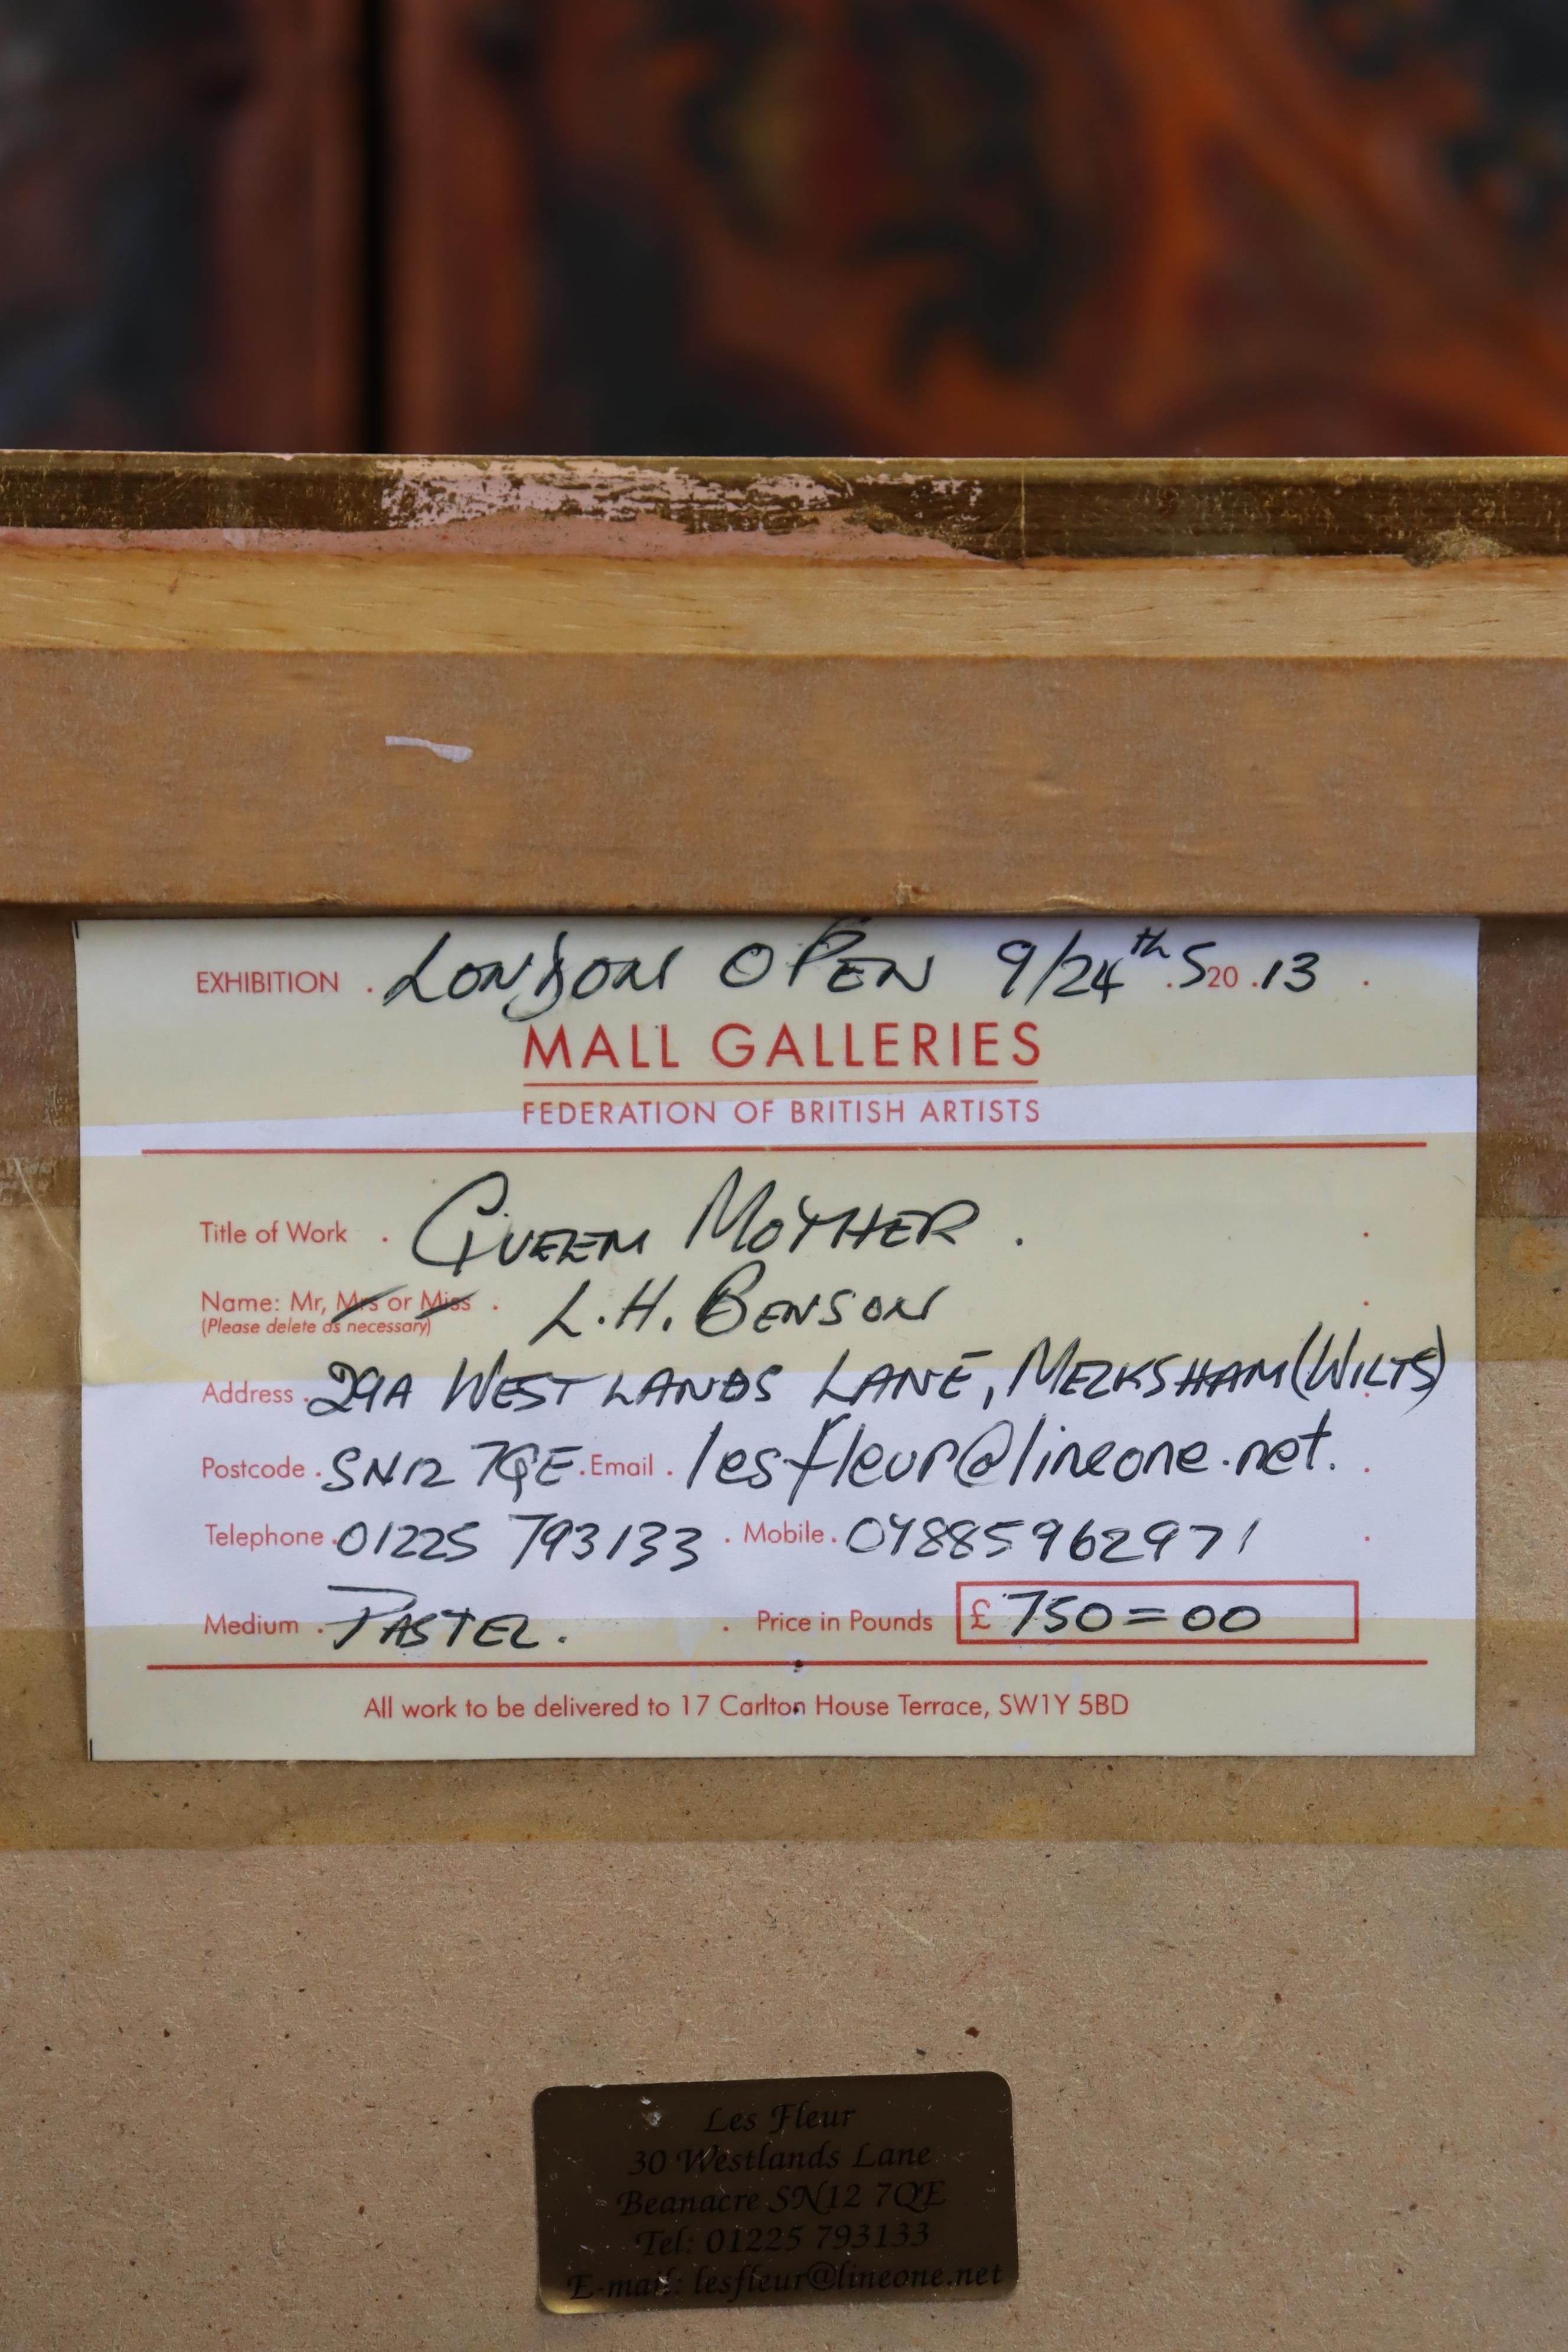 EXHIBITION . LONDON OPEN 9/24th .5 20 .13 .
MALL GALLERIES
FEDERATION OF BRITISH ARTISTS
Title of Work . QUEEN MOTHER . .
Name: Mr, Mrs or Miss . L.H. BENSON .
(Please delete as necessary)
Address . 29A WESTLANDS LANE, MELKSHAM (WILTS)
Postcode . SN12 7QE . Email . lesfleur@lineone.net. .
Telephone . 01225 793133 . Mobile . 07885962971 .
Medium . PASTEL. . Price in Pounds £ 750=00
All work to be delivered to 17 Carlton House Terrace, SW1Y 5BD
Les Fleur
30 Westlands Lane
Beanacre SN12 7QE
Tel: 01225 793133
E-mail: lesfleur@lineone.net